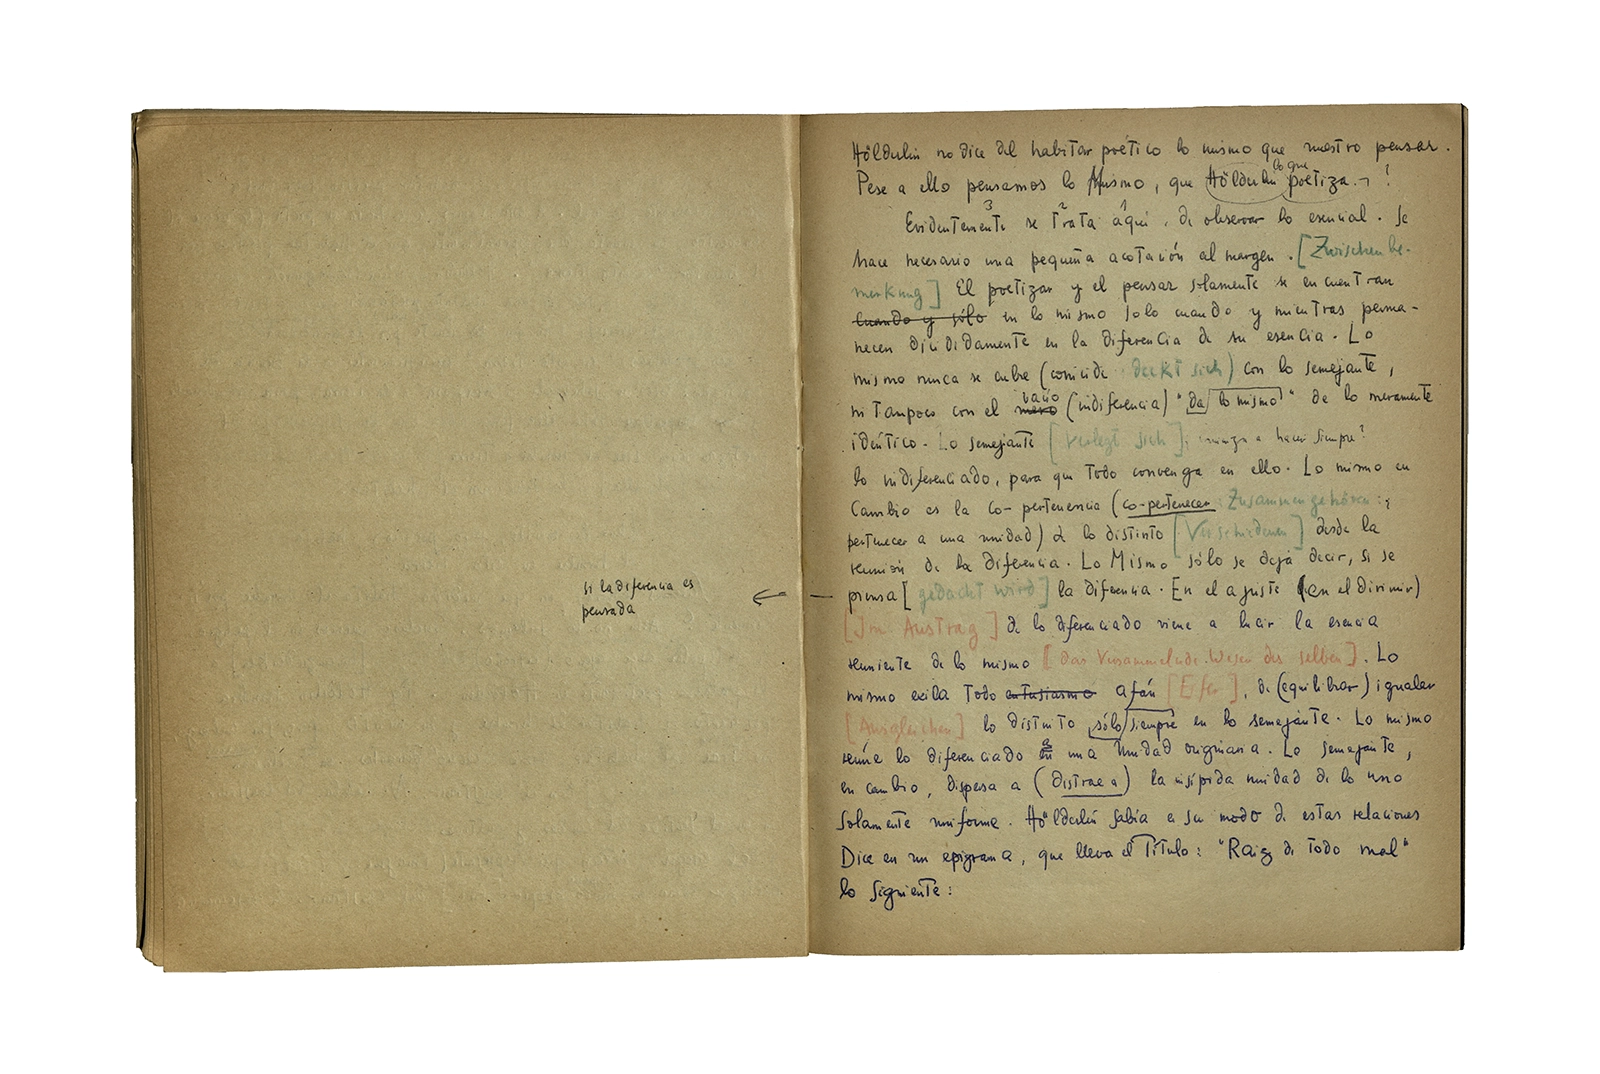 si la diferencia es
pensada
Hölderlin no dice del habitar poético lo mismo que nuestro pensar.
lo que
Pese a ello pensamos lo Mismo, que Hölderlin poetiza. ?
3 2 1
Evidentemente se trata aquí, de observar lo esencial. Se
hace necesario una pequeña acotación al margen. [Zwischenbe-
merkung] El poetizar y el pensar solamente se encuentran
cuando y sólo en lo mismo solo cuando y mientras perma-
necen decididamente en la diferencia de su esencia. Lo
mismo nunca se cubre (coincide deckt sich) con lo semejante,
vacío
ni tampoco con el mero (indiferencia) "da lo mismo" de lo meramente
idéntico. Lo semejante [verlegt sich]; a hacer siempre?
lo indiferenciado, para que todo convenga en ello. Lo mismo en
cambio es la co-pertenencia (co-pertenecer: Zusammengehören:;
pertenecer a una unidad) de lo distinto [Verschiedenen] desde la
reunión de la diferencia. Lo Mismo sólo se deja decir, si se
piensa [gedacht wird] la diferencia. En el ajuste (en el dirimir)
[Im Austrag] de lo diferenciado viene a lucir la esencia
reuniente de lo mismo [das Versammelnde Wesen des selben]. Lo
mismo exila todo entusiasmo afán [Eifer], de (equilibrar) igualar
[Ausgleichen] lo distinto sólo siempre en lo semejante. Lo mismo
reúne lo diferenciado en una Unidad originaria. Lo semejante,
en cambio, dispersa a (distrae a) la insípida unidad de lo uno
solamente uniforme. Hölderlin sabía a su modo de estas relaciones
Dice en un epigrama, que lleva el Título: "Raiz de todo mal"
lo siguiente: